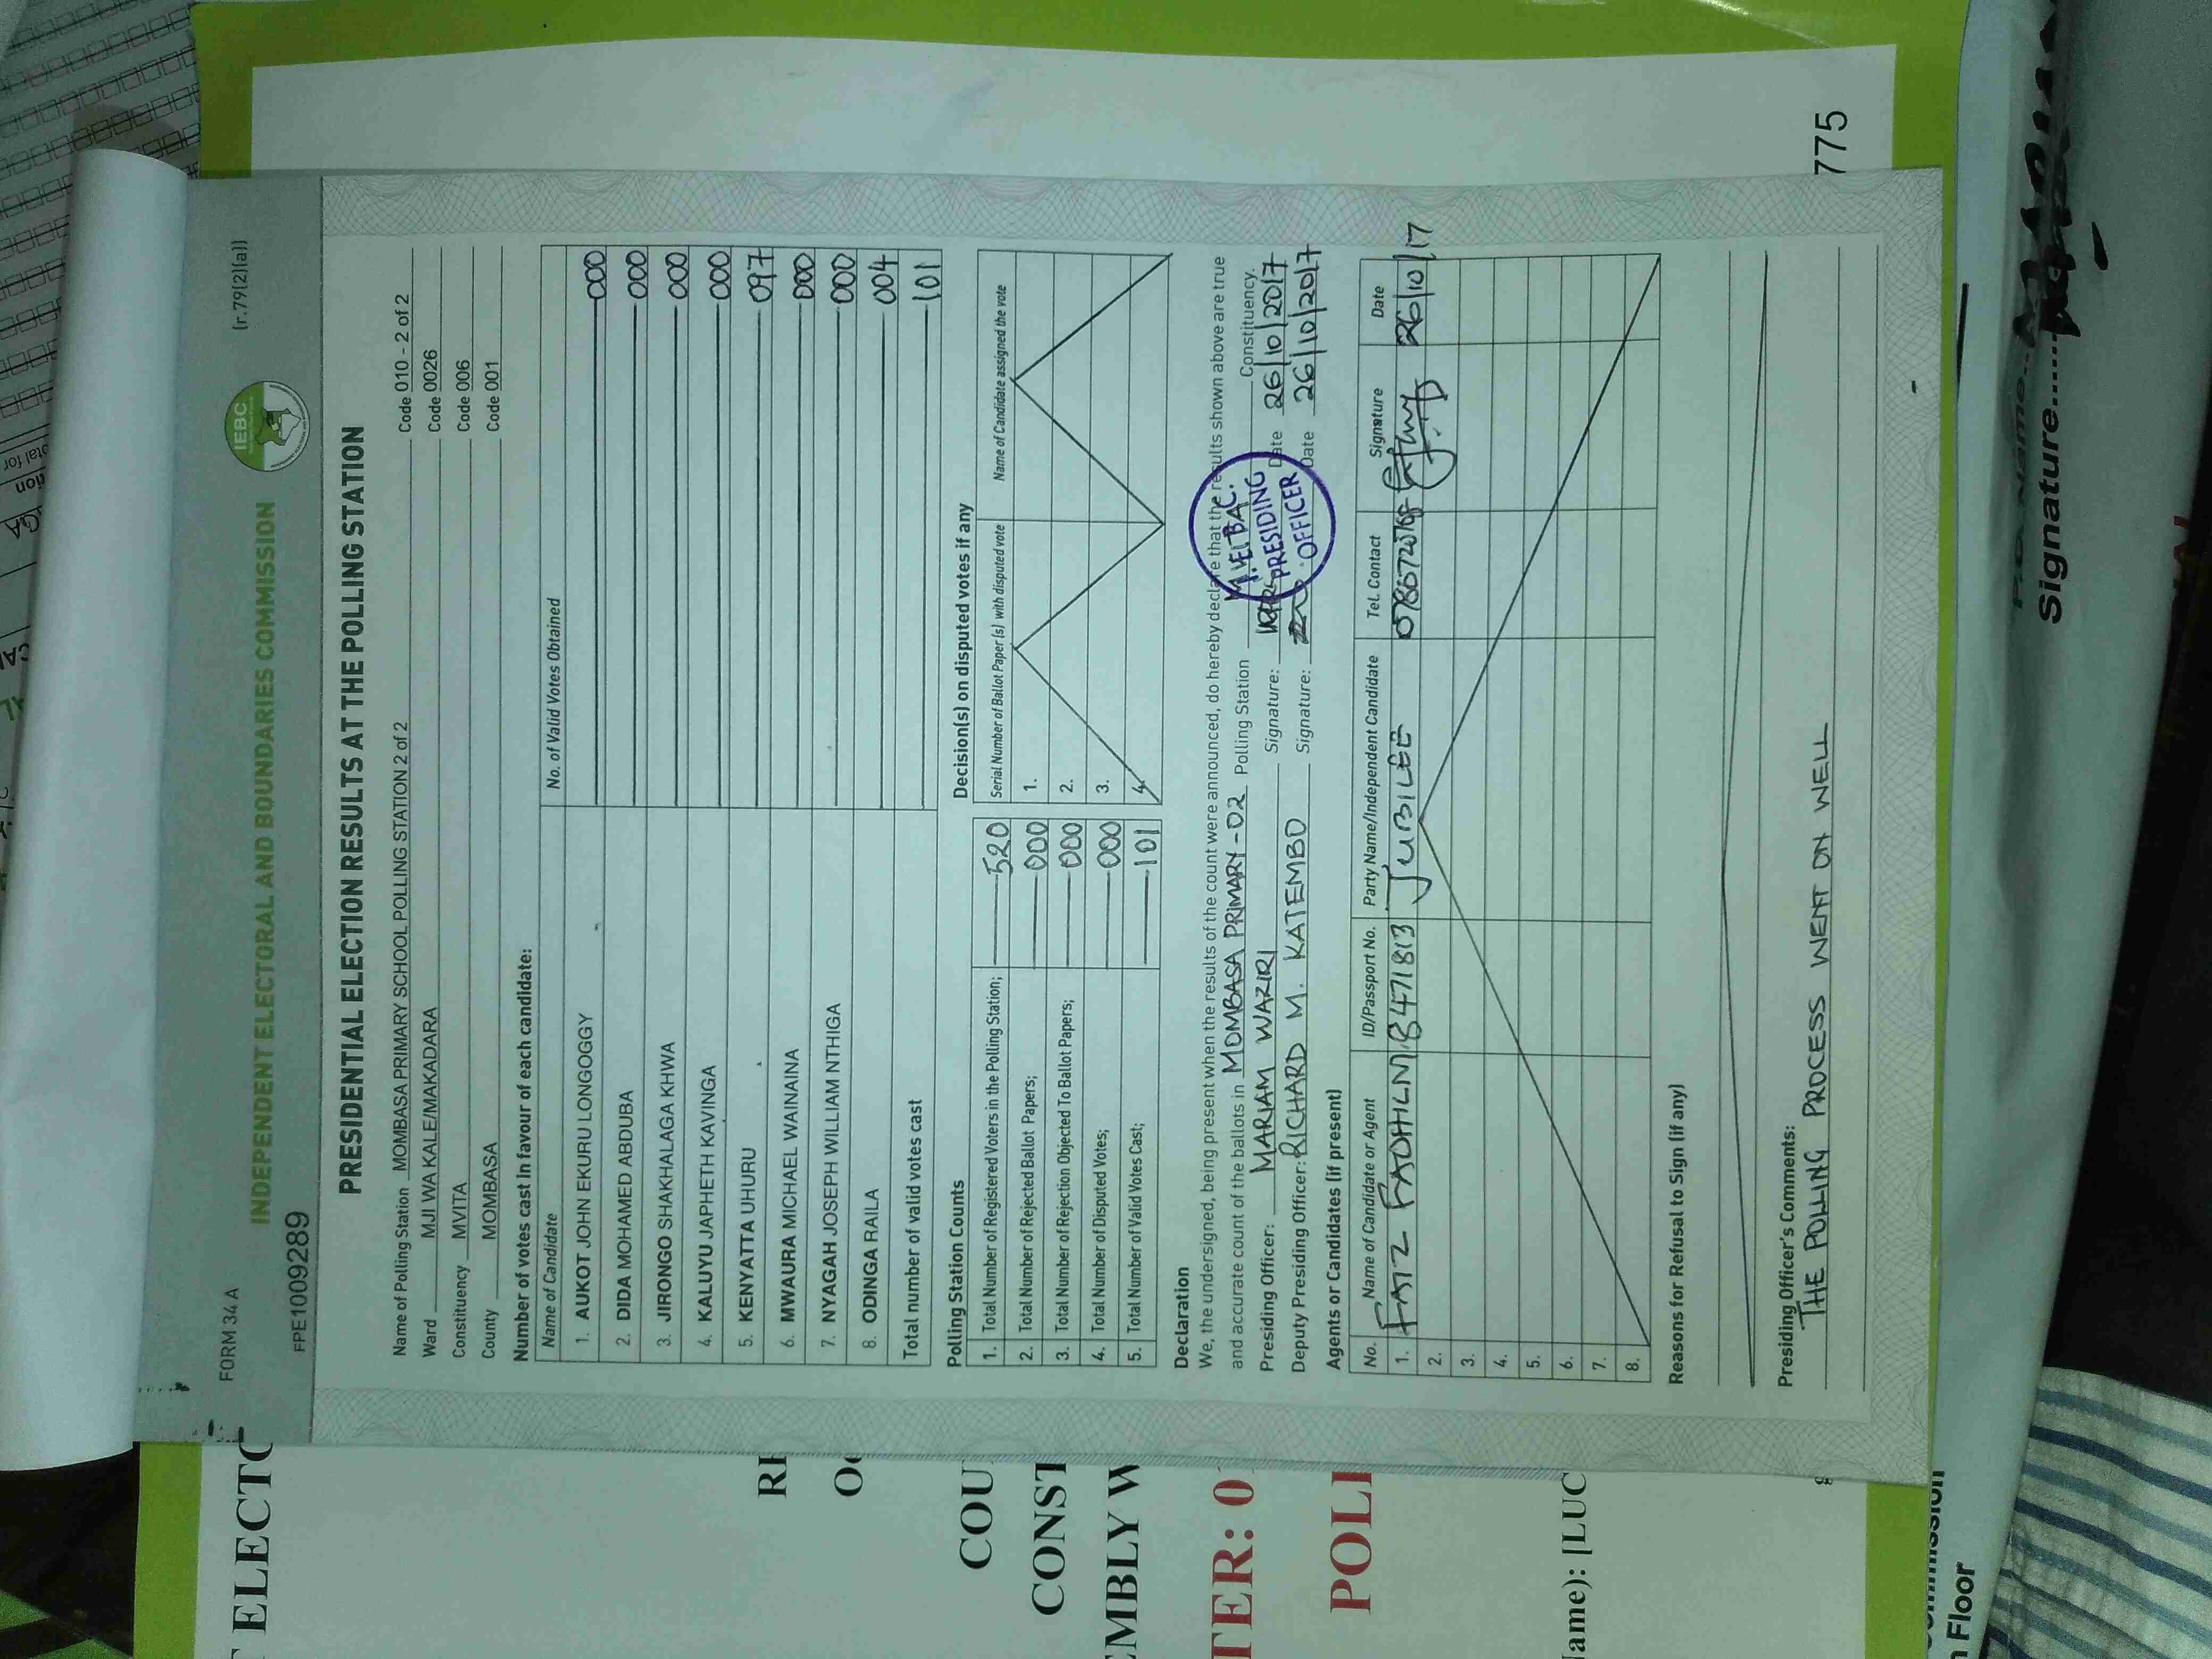 FORM 34 A
(r.79(2)(a))
INDEPENDENT ELECTORAL AND BOUNDARIES COMMISSION
IEBC
FPE10009289
PRESIDENTIAL ELECTION RESULTS AT THE POLLING STATION
Name of Polling Station MOMBASA PRIMARY SCHOOL POLLING STATION 2 of 2 Code 010 - 2 of 2
Ward MJI WA KALE/MAKADARA Code 0026
Constituency MVITA Code 006
County MOMBASA Code 001
Number of votes cast in favour of each candidate:
Name of Candidate No. of Valid Votes Obtained
1. AUKOT JOHN EKURU LONGOGGY 000
2. DIDA MOHAMED ABDUBA 000
3. JIRONGO SHAKHALAGA KHWA 000
4. KALUYU JAPHETH KAVINGA 000
5. KENYATTA UHURU 097
6. MWAURA MICHAEL WAINAINA 000
7. NYAGAH JOSEPH WILLIAM NTHIGA 000
8. ODINGA RAILA 004
Total number of valid votes cast 101
Polling Station Counts
1. Total Number of Registered Voters in the Polling Station; 520
2. Total Number of Rejected Ballot Papers; 000
3. Total Number of Rejection Objected To Ballot Papers; 000
4. Total Number of Disputed Votes; 000
5. Total Number of Valid Votes Cast; 101
Decision(s) on disputed votes if any
Serial Number of Ballot Paper(s) with disputed vote Name of Candidate assigned the vote
1.
2.
3.
4.
Declaration
We, the undersigned, being present when the results of the count were announced, do hereby declare that the results shown above are true
and accurate count of the ballots in MOMBASA PRIMARY-02 Polling Station Constituency.
Presiding Officer: MARIAM WAZIRI Signature: Date 26/10/2017
Deputy Presiding Officer: RICHARD M. KATEMBO Signature: Date 26/10/2017
PRESIDING
OFFICER
Agents or Candidates (if present)
No. Name of Candidate or Agent ID/Passport No. Party Name/Independent Candidate Tel. Contact Signature Date
1. JUBILEE 26/10/17
2.
3.
4.
5.
6.
7.
8.
Reasons for Refusal to Sign (if any)
Presiding Officer's Comments:
THE POLLING PROCESS WENT ON WELL
775
ELECTO
COU
CONST
EMBLY W
TER: 0
POLI
ame): [LUC
Floor
Signature......